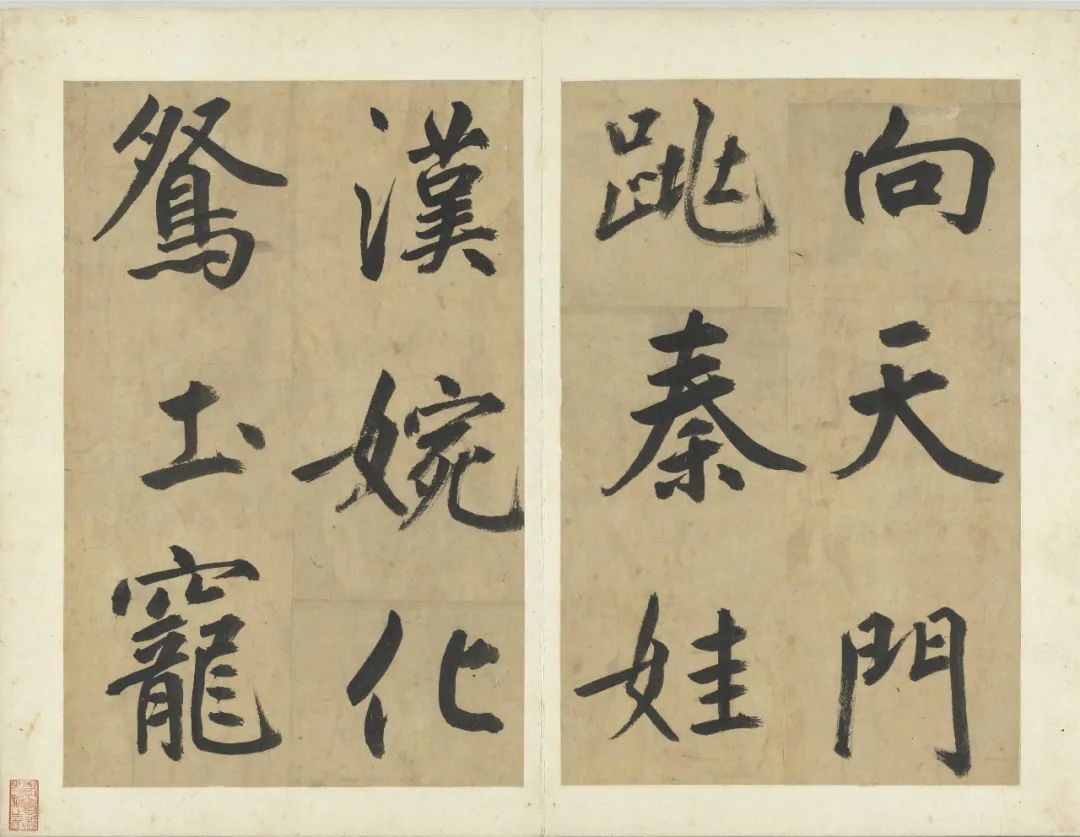 向天門
跳秦娃
漢婉化
鴛土竉